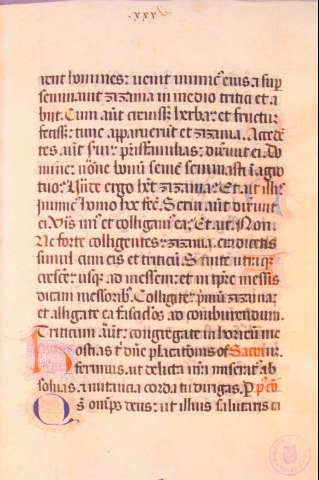 .xxx
rent homines: uenit inimic' eius, ⁊ sup
seminauit zizania in medio tritici et a
biit. Cum aūt creuisset herba: et fructum
fecisset: tunc apparuerūt et zizania. Acceden
tes aūt serui prīsfamilias: dixerūt ei. Do
mine: nōne bonū semē seminasti ī agro
tuo? Vnde ergo hēt zizania? Et ait illis
inimic' homo hoc fēc. Serui aūt dixerūt
ei. Vis imus et colligimus ea? Et ait. Non.
Ne forte colligentes zizania, eradicetis
simul cum eis et triticū. Sinite utraque
crescere usque ad messem: et in tpre messis
dicam messoribus. Colligite primū zizania:
et alligate ea fasciclos ad comburendum.
Triticum aūt: congregate in horreū meū
Hostias t' dñe placationis of Sacra
ferimus. ut delicta nrā miserat' ab
soluas. ⁊ nutantia corda tu dirigas. P pco
Qs omps deus: ut illius salutaris ca